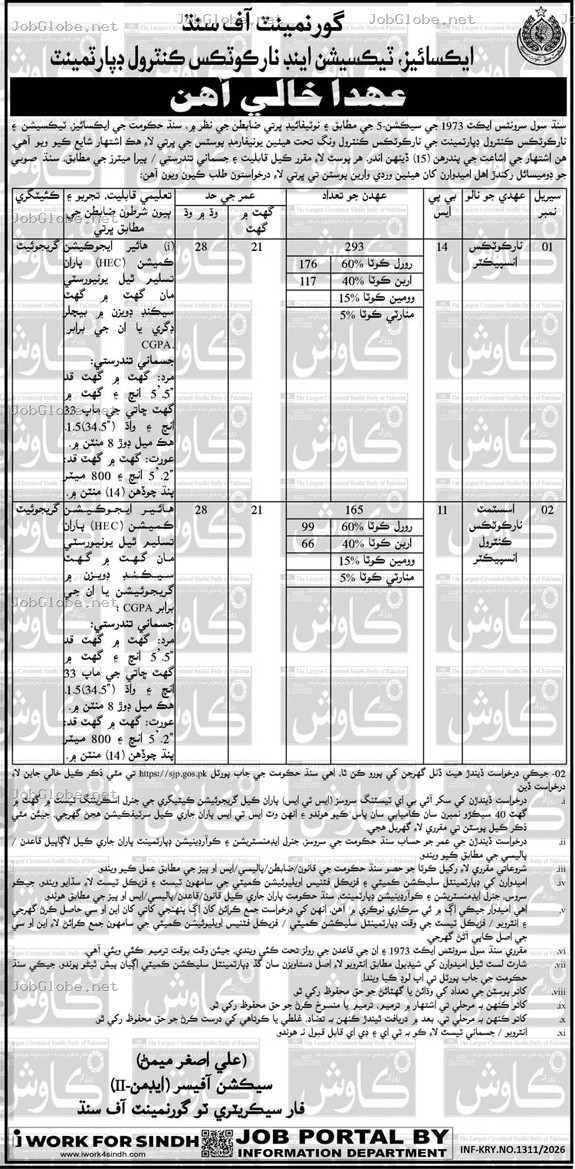 گورنمينٽ آف سنڌ
ايڪسائيز، ٽيڪسيشن اينڊ نارڪوٽڪس ڪنٽرول ڊپارٽمينٽ
عهدا خالي آهن
سنڌ سول سرونٽس ايڪٽ 1973 جي سيڪشن-5 جي مطابق ۽ نوٽيفائيڊ ڀرتي ضابطن جي نظر ۾، سنڌ حڪومت جي ايڪسائيز، ٽيڪسيشن ۽
نارڪوٽڪس ڪنٽرول ڊپارٽمينٽ جي نارڪوٽڪس ڪنٽرول ونگ تحت هيٺين يونيفارمڊ پوسٽس جي ڀرتي لاءِ هڪ اشتهار شايع ڪيو ويو آهي.
هن اشتهار جي اشاعت جي پندرهن (15) ڏينهن اندر، هر پوسٽ لاءِ مقرر ڪيل قابليت ۽ جسماني تندرستي / پيرا ميٽرز جي مطابق، سنڌ صوبي
جو ڊوميسائل رکندڙ اهل اميدوارن کان هيٺين وردي وارين پوسٽن تي ڀرتي لاءِ درخواستون طلب ڪيون ويون آهن:
سيريل نمبر
عهدي جو نالو
بي پي ايس
عهدن جو تعداد
عمر جي حد
گهٽ ۾ گهٽ
وڌ ۾ وڌ
تعليمي قابليت، تجربو ۽ ٻيون شرطون ضابطن جي مطابق ڀرتي
ڪئيٽگري
01
نارڪوٽڪس
انسپيڪٽر
14
293
رورل ڪوٽا 60% 176
اربن ڪوٽا 40% 117
وومين ڪوٽا 15%
منارٽي ڪوٽا 5%
21
28
(i) هائير ايجوڪيشن
ڪميشن (HEC) پاران
تسليم ٿيل يونيورسٽي
مان گهٽ ۾ گهٽ
سيڪنڊ ڊويزن ۾ بيچلر
ڊگري يا ان جي برابر
CGPA.
جسماني تندرستي:
مرد: گهٽ ۾ گهٽ قد
5'.5" انچ ۽ گهٽ ۾
گهٽ ڇاتي جي ماپ 33
انچ ۽ واڌ (34.5")1.5.
هڪ ميل ڊوڙ 8 منٽن ۾.
عورت: گهٽ ۾ گهٽ قد:
5'.2" انچ ۽ 800 ميٽر
پنڌ چوڏهن (14) منٽن ۾.
گريجوئيٽ
02
اسسٽنٽ
نارڪوٽڪس
ڪنٽرول
انسپيڪٽر
11
165
رورل ڪوٽا 60% 99
اربن ڪوٽا 40% 66
وومين ڪوٽا 15%
منارٽي ڪوٽا 5%
21
28
هائير ايجوڪيشن
ڪميشن (HEC) پاران
تسليم ٿيل يونيورسٽي
مان گهٽ ۾ گهٽ
سيڪنڊ ڊويزن ۾
گريجوئيشن يا ان جي
برابر CGPA ;
جسماني تندرستي:
مرد: گهٽ ۾ گهٽ قد
5'.5" انچ ۽ گهٽ ۾
گهٽ ڇاتي جي ماپ 33
انچ ۽ واڌ (34.5")1.5.
هڪ ميل ڊوڙ 8 منٽن ۾.
عورت: گهٽ ۾ گهٽ قد:
5'.2" انچ ۽ 800 ميٽر
پنڌ چوڏهن (14) منٽن ۾.
گريجوئيٽ
02- جيڪي درخواست ڏيندڙ هيٺ ڏنل گهرجن کي پورو ڪن ٿا، اهي سنڌ حڪومت جي جاب پورٽل https://sjp.gos.pk تي مٿي ذڪر ڪيل خالي جاين لاءِ
درخواست ڏين.
i. درخواست ڏيندڙن کي سکر آئي بي اي ٽيسٽنگ سروسز (ايس ٽي ايس) پاران ڪيل گريجوئيشن ڪيٽيگري جي جنرل اسڪريننگ ٽيسٽ ۾ گهٽ ۾
گهٽ 40 سيڪڙو نمبرن سان ڪاميابي سان پاس ڪيو هوندو ۽ انهن وٽ ايس ٽي ايس پاران جاري ڪيل سرٽيفڪيشن هجڻ گهرجي. جيئن مٿي
ذڪر ڪيل پوسٽن تي مقرري لاءِ گهربل هجي.
ii. درخواست ڏيندڙن جي عمر جو حساب سنڌ حڪومت جي سروسز، جنرل ايڊمنسٽريشن ۽ ڪوآرڊينيشن ڊپارٽمينٽ پاران جاري ڪيل لاڳاپيل قاعدن /
پاليسي جي مطابق ڪيو ويندو
iii. شروعاتي مقرري لاءِ رکيل ڪوٽا جو حصو سنڌ حڪومت جي قانون/ضابطن/پاليسي/ايس او پيز جي مطابق عمل ڪيو ويندو.
iv. اميدوارن کي ڊپارٽمينٽل سليڪشن ڪميٽي ۽ فزيڪل فٽنيس ايويليوئيشن ڪميٽي جي سامهون ٽيسٽ ۽ فزيڪل ٽيسٽ لاءِ سڏايو ويندو، جيڪو
سروس، جنرل ايڊمنسٽريشن ۽ ڪوآرڊينيشن ڊپارٽمينٽ، سنڌ حڪومت پاران جاري ڪيل قانون/قاعدن/پاليسي/ايس او پيز جي مطابق هوندو
v. اهي اميدوار جيڪي اڳ ۾ ئي سرڪاري نوڪري ۾ آهن، انهن کي درخواست جمع ڪرائڻ کان اڳ پنهنجي کاتي کان اين او سي حاصل ڪرڻ گهرجي
۽ انٽرويو / فزيڪل ٽيسٽ جي وقت ڊپارٽمينٽل سليڪشن ڪميٽي / فزيڪل فٽنيس ايويليوئيشن ڪميٽي جي سامهون جمع ڪرائڻ لاءِ اين او سي
جي اصل ڪاپي آڻڻ گهرجي.
vi. مقرري سنڌ سول سرونٽس ايڪٽ 1973 ۽ ان جي قاعدن جي رولز تحت ڪئي ويندي، جيئن وقت بوقت ترميم ڪئي ويئي آهي.
vii. شارٽ لسٽ ٿيل اميدوارن کي شيڊيول مطابق انٽرويو لاءِ اصل دستاويزن سان گڏ ڊپارٽمينٽل سليڪشن ڪميٽي اڳيان پيش ٿيڻو پوندو، جيڪي سنڌ
حڪومت جي جاب پورٽل تي اپ لوڊ ڪيا ويندا
viii. کاتو پوسٽن جي تعداد کي وڌائڻ يا گهٽائڻ جو حق محفوظ رکي ٿو.
ix. کاتو ڪنهن به مرحلي تي اشتهار ۾ ترميم، ترميم يا منسوخ ڪرڻ جو حق محفوظ رکي ٿو.
x. کاتو ڪنهن به مرحلي تي، بعد ۾ دريافت ٿيندڙ ڪنهن به تضاد، غلطي يا ڪوتاهي کي درست ڪرڻ جو حق محفوظ رکي ٿو.
xi. انٽرويو / جسماني ٽيسٽ لاءِ ڪو به ٽي اي ۽ ڊي اي قابل قبول نه هوندو.
(علي اصغر ميمڻ)
سيڪشن آفيسر (ايڊمن-II)
فار سيڪريٽري ٽو گورنمينٽ آف سنڌ
i WORK FOR SINDH
www.iwork4sindh.com
JOB PORTAL BY
INFORMATION DEPARTMENT
INF-KRY.NO.1311/2026
JobGlobe.net
ڪاوش
The Largest Circulated Sindhi Daily of Pakistan